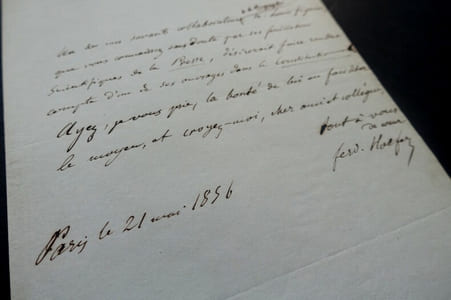 Un de mes savants collaborateurs,
que vous connaissez sans doute par ses feuilletons
scientifiques de la Presse, désirerait faire rendre
compte d'un de ses ouvrages dans le Constitutionnel
Ayez, je vous prie, la bonté de lui en faciliter
le moyen, et croyez-moi, cher ami et collègue,
tout à vous
de cœur
ferd. Hoefer
Paris le 21 mai 1856